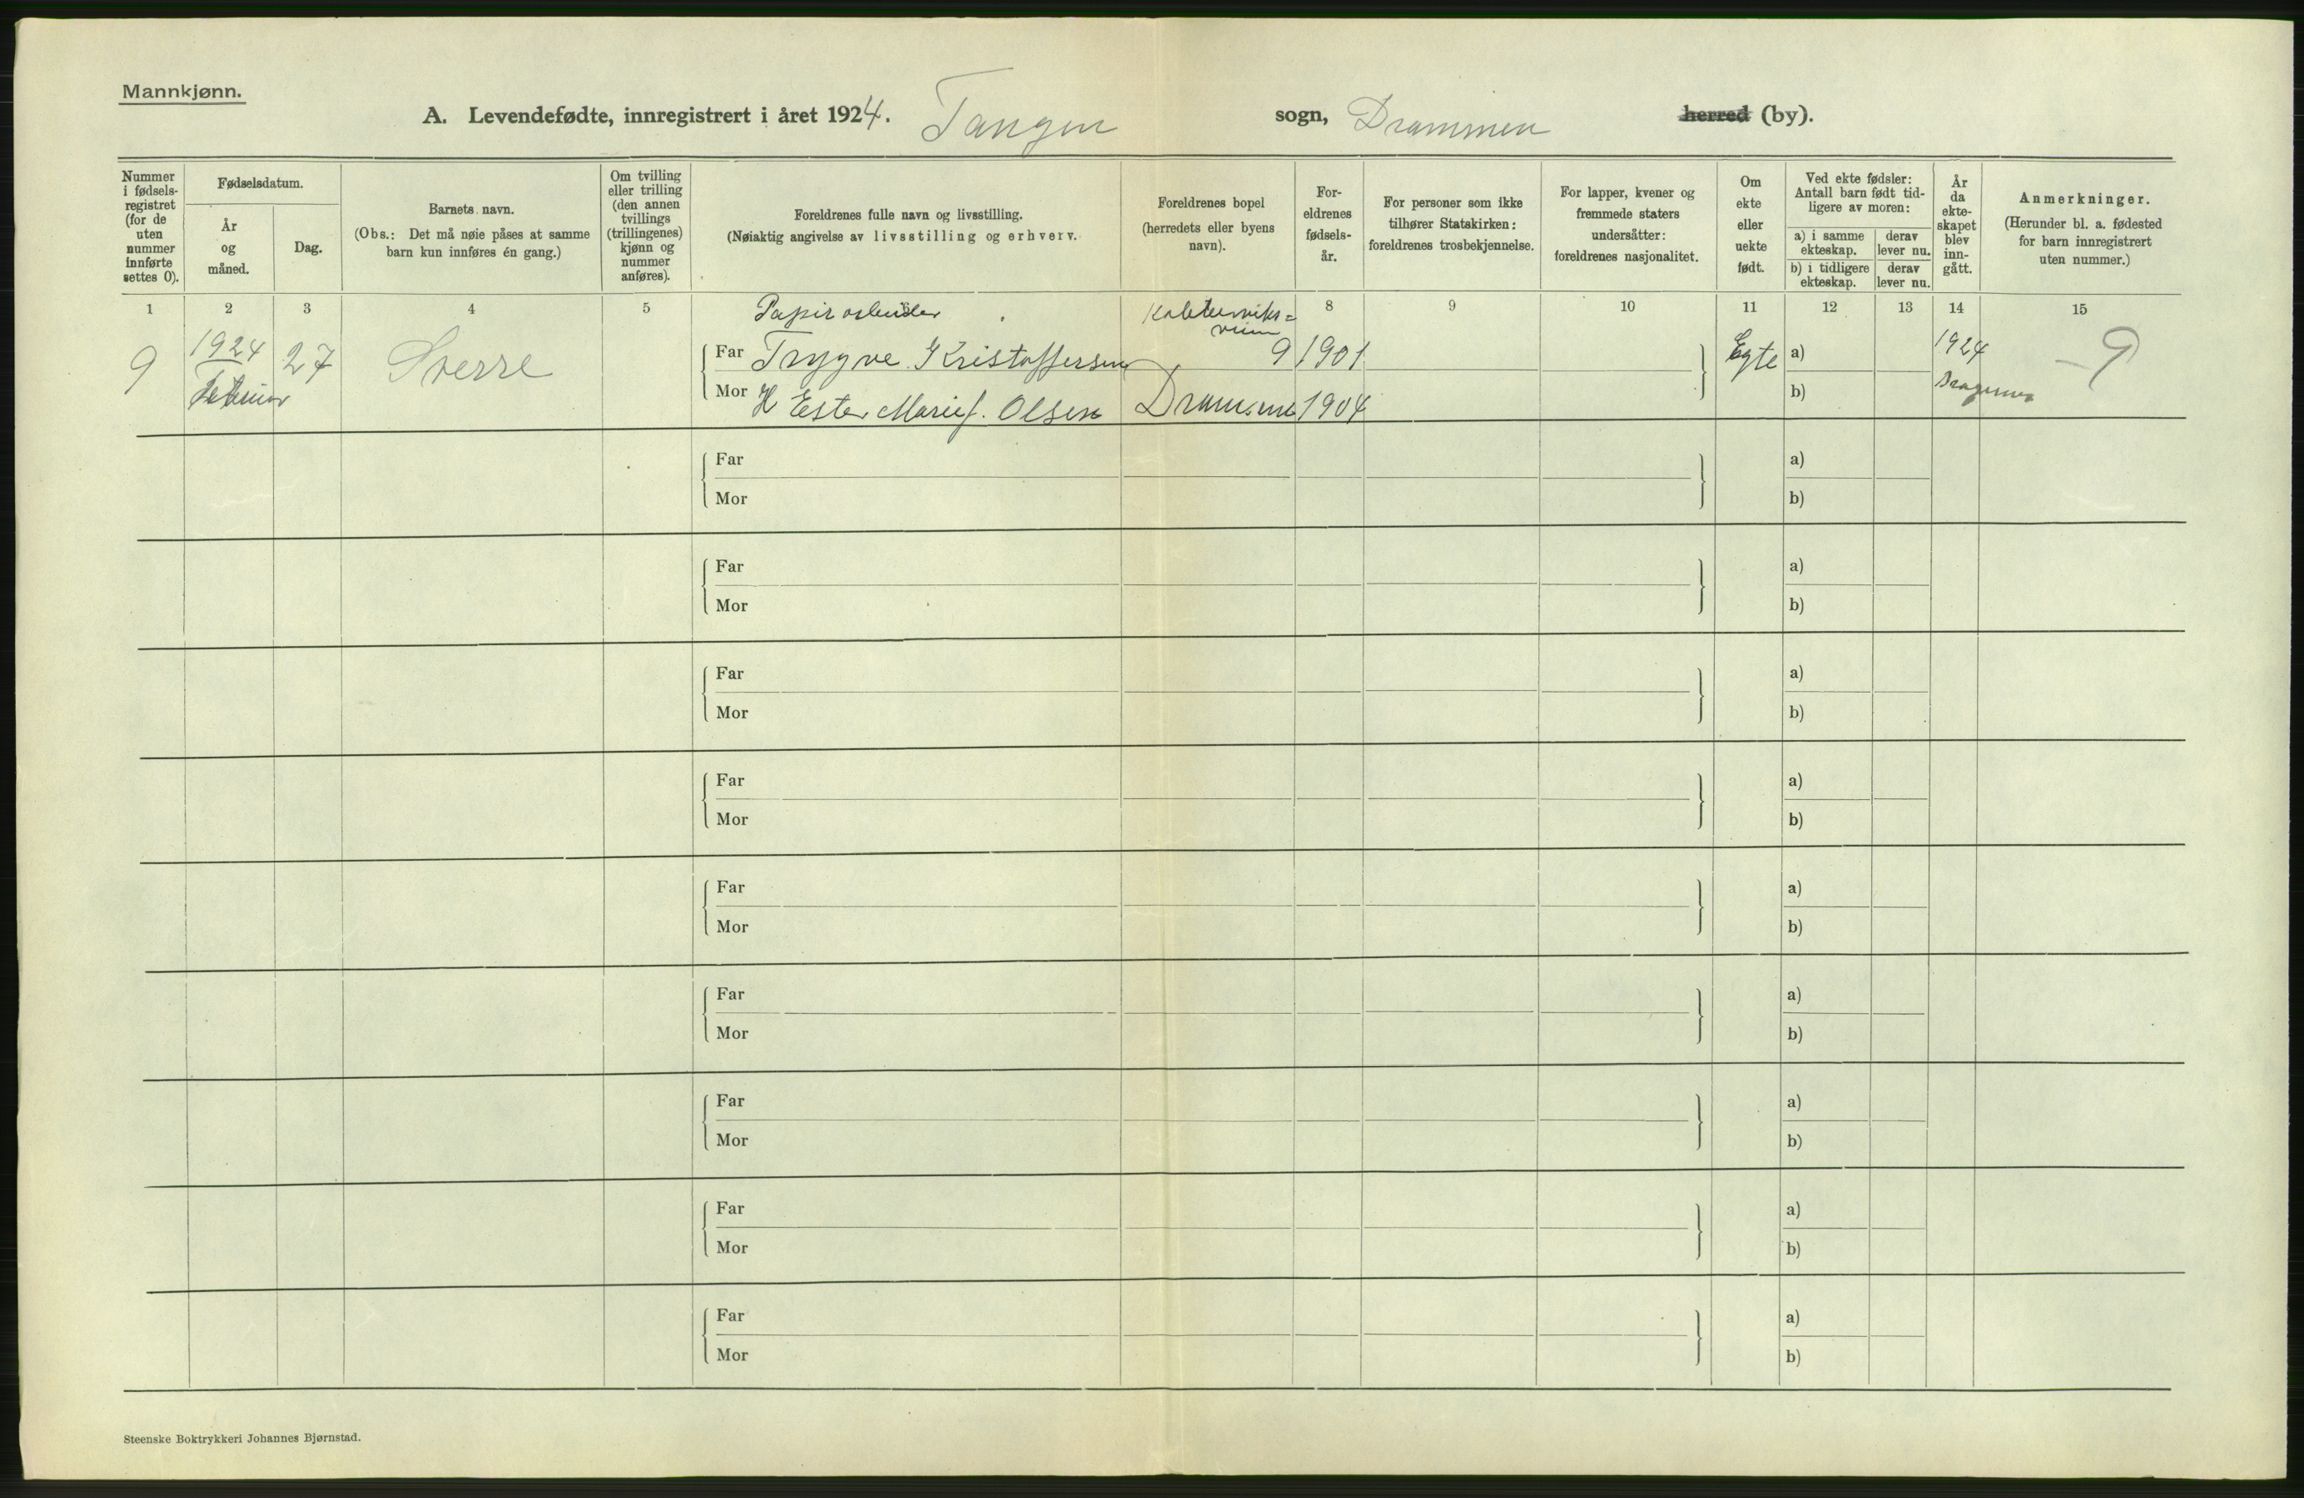 Mannkjønn.
A. Levendefødte, innregistrert i året 1924. Tangen sogn, Drammen herred (by).
Nummer i fødsels-registret (for de uten nummer innførte settes 0).
Fødselsdatum.
År og måned.
Dag.
Barnets navn.
(Obs.: Det må nøie påses at samme barn kun innføres én gang.)
Om tvilling eller trilling (den annen tvillings (trillingenes) kjønn og nummer anføres).
Foreldrenes fulle navn og livsstilling.
(Nøiaktig angivelse av livsstilling og erhverv.
Foreldrenes bopel (herredets eller byens navn).
For-eldrenes fødsels-år.
For personer som ikke tilhører Statskirken: foreldrenes trosbekjennelse.
For lapper, kvener og fremmede staters undersåtter: foreldrenes nasjonalitet.
Om ekte eller uekte født.
Ved ekte fødsler: Antall barn født tid-ligere av moren:
a) i samme ekteskap.
derav lever nu.
b) i tidligere ekteskap.
derav lever nu.
År da ekte-skapet blev inn-gått.
Anmerkninger.
(Herunder bl. a. fødested for barn innregistrert uten nummer.)
1 2 3 4 5 8 9 10 11 12 13 14 15
Papirarbeider
9 1924 27 Sverre Far Trygve Kristoffersen 9 1901 Egte a) 1924 9
Februar Mor H Ester Marie f. Olsen Drammen 1904 b)
Far a)
Mor b)
Far a)
Mor b)
Far a)
Mor b)
Far a)
Mor b)
Far a)
Mor b)
Far a)
Mor b)
Far a)
Mor b)
Far a)
Mor b)
Far a)
Mor b)
Steenske Boktrykkeri Johannes Bjørnstad.